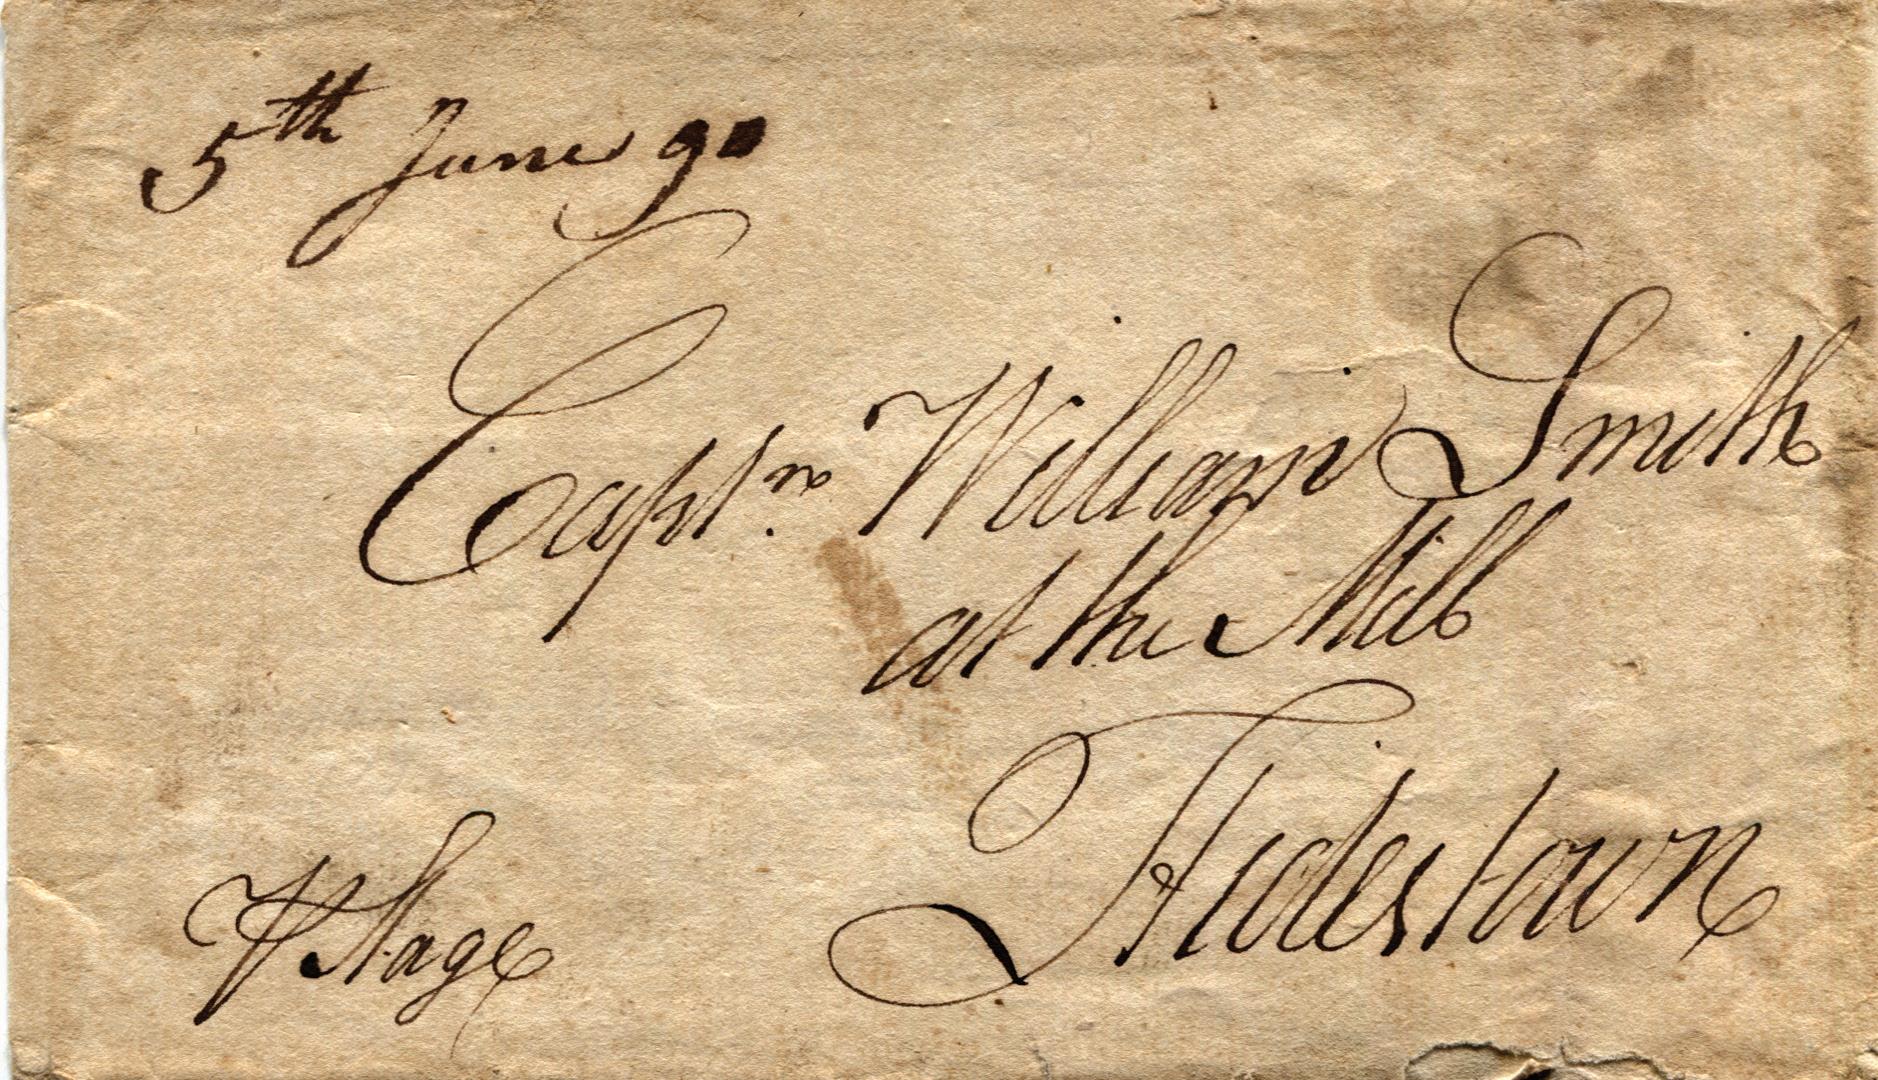 5th June 90
Captn William Smith
at the Mill
Hidestown
⅌ Stage